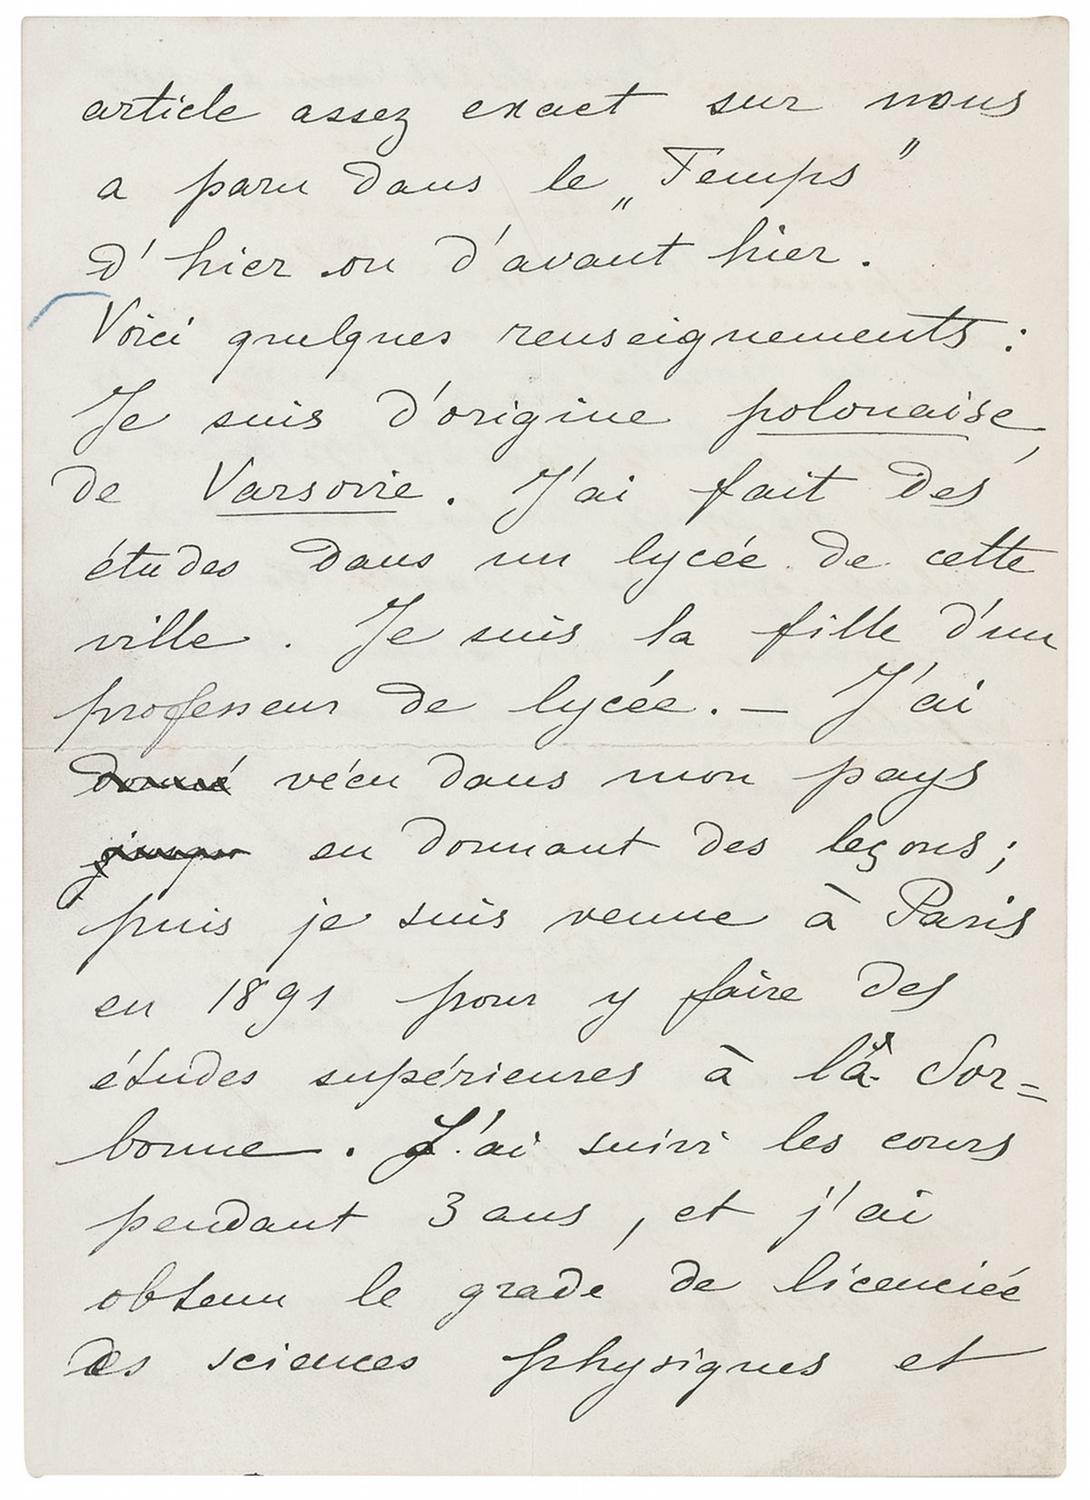 article assez exact sur nous
a paru dans le „Temps”
d'hier ou d'avant hier.
Voici quelques renseignements :
Je suis d'origine polonaise,
de Varsovie. J'ai fait des
études dans un lycée de cette
ville. Je suis la fille d'un
professeur de lycée. — J'ai
donné vécu dans mon pays
en donnant des leçons ;
puis je suis venue à Paris
en 1891 pour y faire des
études supérieures à la Sor=
bonne. J'ai suivi les cours
pendant 3 ans, et j'ai
obtenu le grade de licenciée
des sciences physiques et